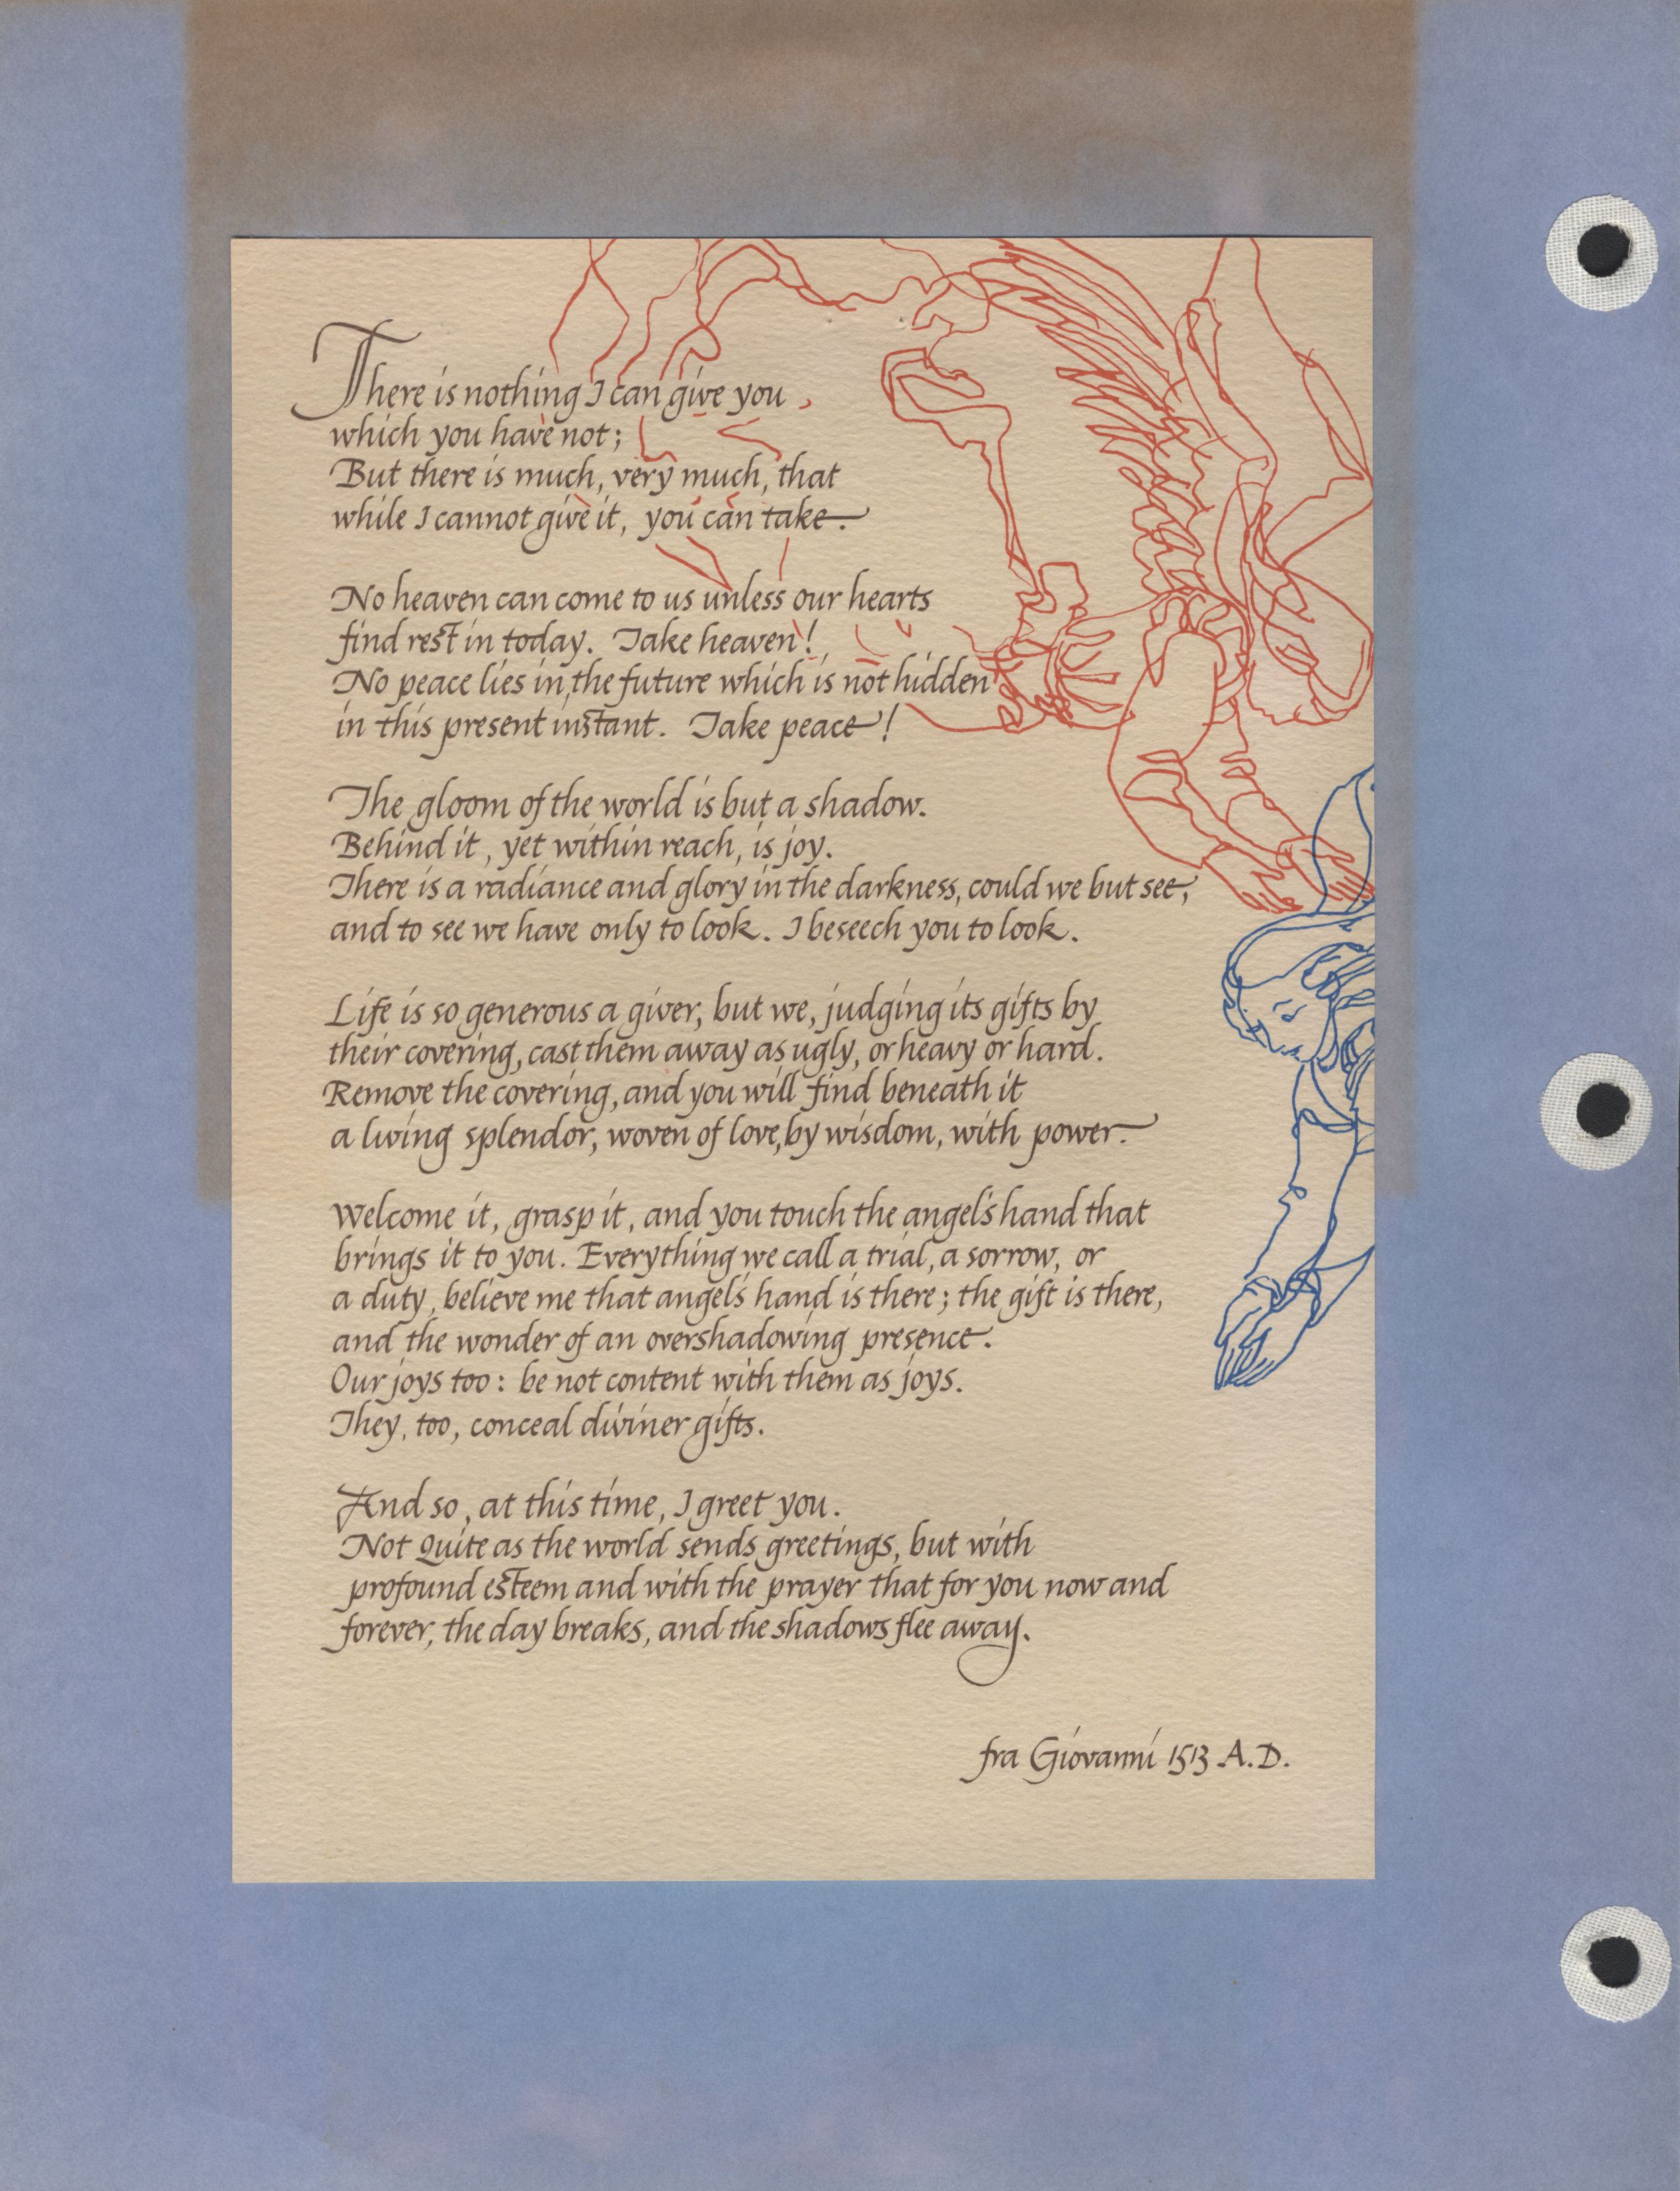 There is nothing I can give you
which you have not;
But there is much, very much, that
while I cannot give it, you can take.
No heaven can come to us unless our hearts
find rest in today. Take heaven!
No peace lies in the future which is not hidden
in this present instant. Take peace!
The gloom of the world is but a shadow.
Behind it, yet within reach, is joy.
There is a radiance and glory in the darkness, could we but see,
and to see we have only to look. I beseech you to look.
Life is so generous a giver, but we, judging its gifts by
their covering, cast them away as ugly, or heavy or hard.
Remove the covering, and you will find beneath it
a living splendor, woven of love, by wisdom, with power.
Welcome it, grasp it, and you touch the angel's hand that
brings it to you. Everything we call a trial, a sorrow, or
a duty, believe me that angel's hand is there; the gift is there,
and the wonder of an overshadowing presence.
Our joys too: be not content with them as joys.
They, too, conceal diviner gifts.
And so, at this time, I greet you.
Not Quite as the world sends greetings, but with
profound esteem and with the prayer that for you now and
forever, the day breaks, and the shadows flee away.
fra Giovanni 1513 A.D.